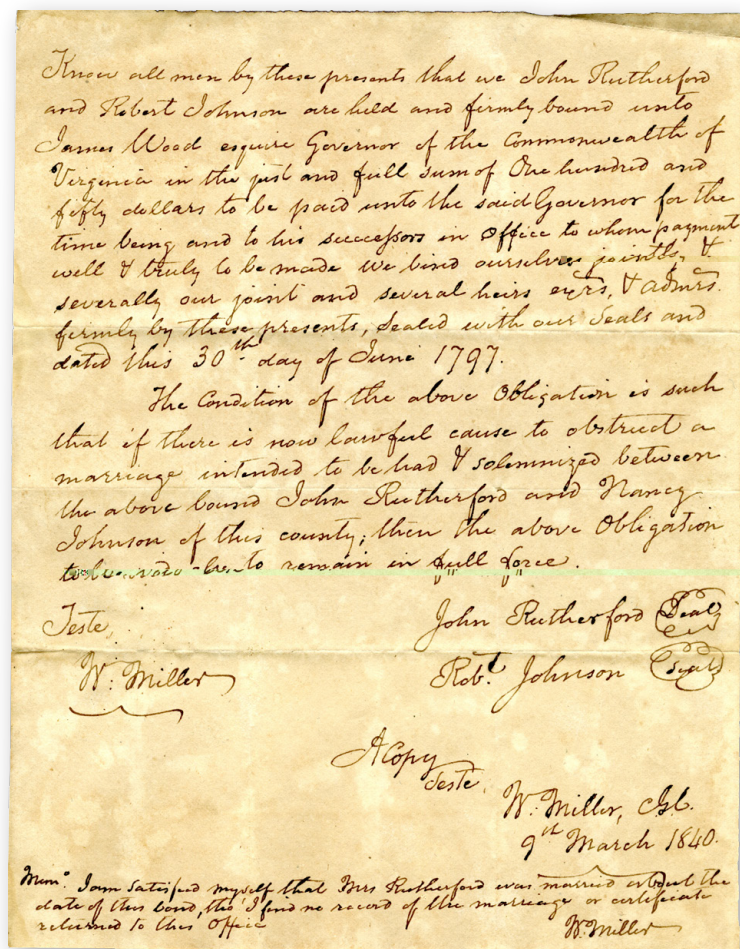 Know all men by these presents that we John Rutherford
and Robert Johnson are held and firmly bound unto
James Wood esquire Governor of the Commonwealth of
Virginia in the just and full sum of One hundred and
fifty dollars to be paid unto the said Governor for the
time being and to his successors in office to whom payment
well & truly to be made we bind ourselves jointly &
severally our joint and several heirs exrs, & admrs.
firmly by these presents, Sealed with our Seals and
dated this 30th day of June 1797.
The Condition of the above Obligation is such
that if there is now lawful cause to obstruct a
marriage intended to be had & solemnized between
the above bound John Rutherford and Nancy
Johnson of this county; then the above Obligation
to be void to remain in full force.
John Rutherford (Seal)
Teste,
Robt. Johnson (Seal)
W: Miller
A Copy
Teste,
W. Miller,
9th March 1840.
Memo. I am satisfied myself that Mrs Rutherford was married about the
date of this bond, tho' I find no record of the marriage or certificate
returned to this Office
W. Miller